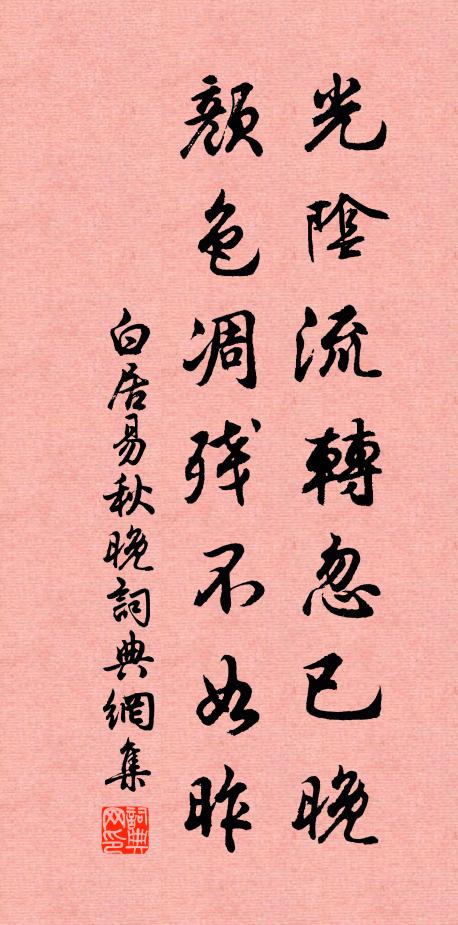 光陰流轉忽已晚
顏色凋残不如昨
白居易秋晚詞典網集
詞典网印